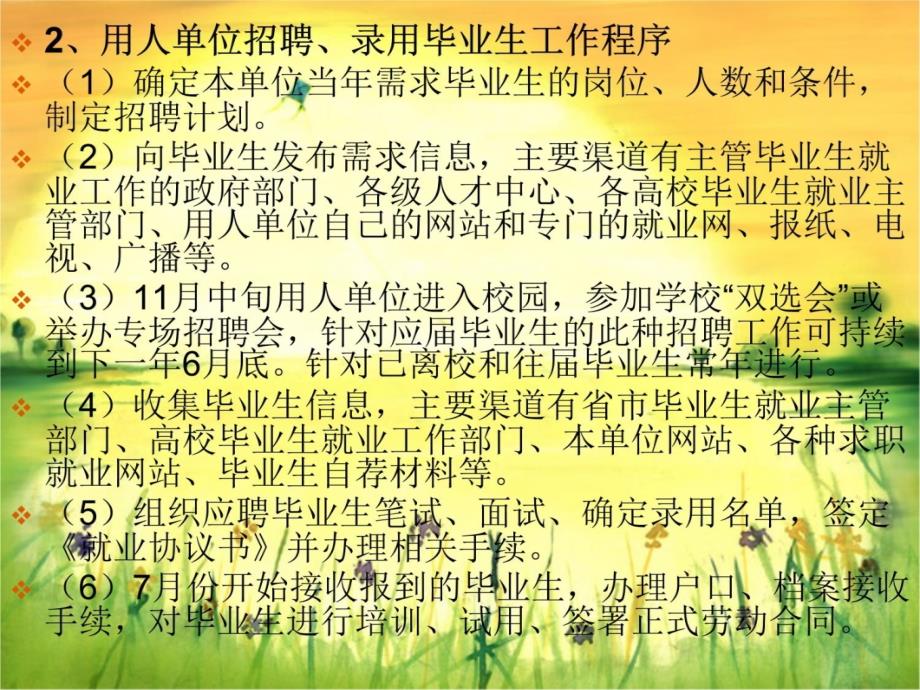 2、用人单位招聘、录用毕业生工作程序
（1）确定本单位当年需求毕业生的岗位、人数和条件，
制定招聘计划。
（2）向毕业生发布需求信息，主要渠道有主管毕业生就
业工作的政府部门、各级人才中心、各高校毕业生就业主
管部门、用人单位自己的网站和专门的就业网、报纸、电
视、广播等。
（3）11月中旬用人单位进入校园，参加学校“双选会”或
举办专场招聘会，针对应届毕业生的此种招聘工作可持续
到下一年6月底。针对已离校和往届毕业生常年进行。
（4）收集毕业生信息，主要渠道有省市毕业生就业主管
部门、高校毕业生就业工作部门、本单位网站、各种求职
就业网站、毕业生自荐材料等。
（5）组织应聘毕业生笔试、面试、确定录用名单，签定
《就业协议书》并办理相关手续。
（6）7月份开始接收报到的毕业生，办理户口、档案接收
手续，对毕业生进行培训、试用、签署正式劳动合同。